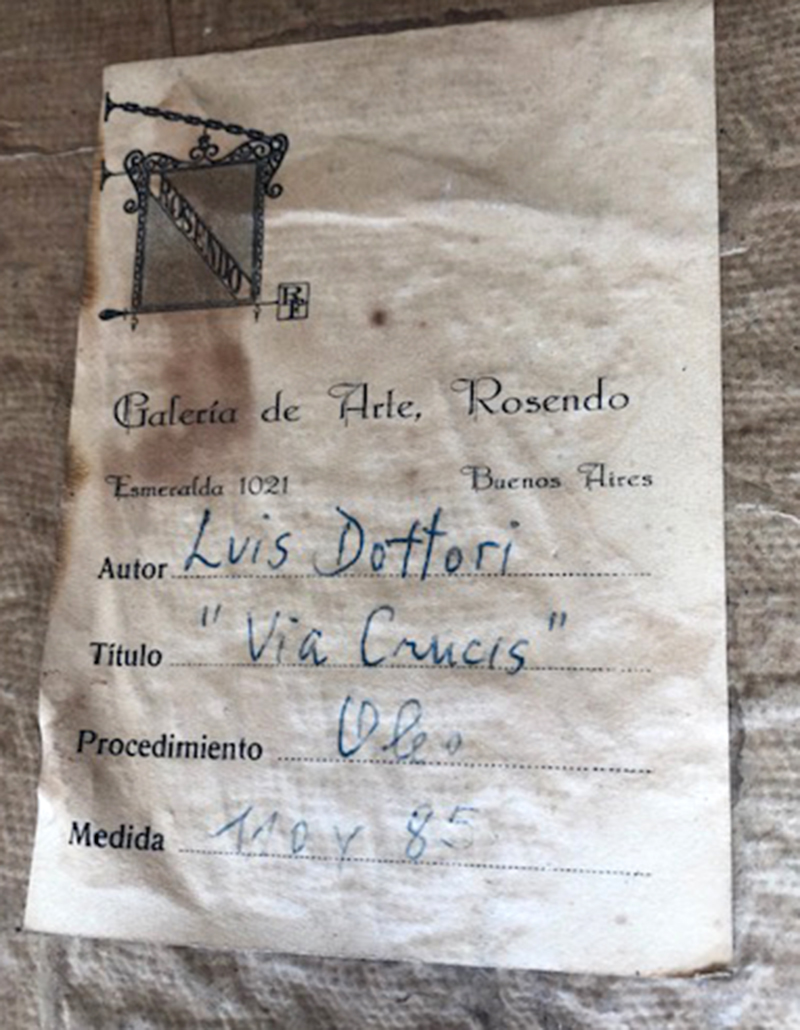 ROSENDO
Galería de Arte, Rosendo
Esmeralda 1021 Buenos Aires
Autor Luis Dottori
Título "Via Crucis"
Procedimiento Oleo
Medida 110 x 85